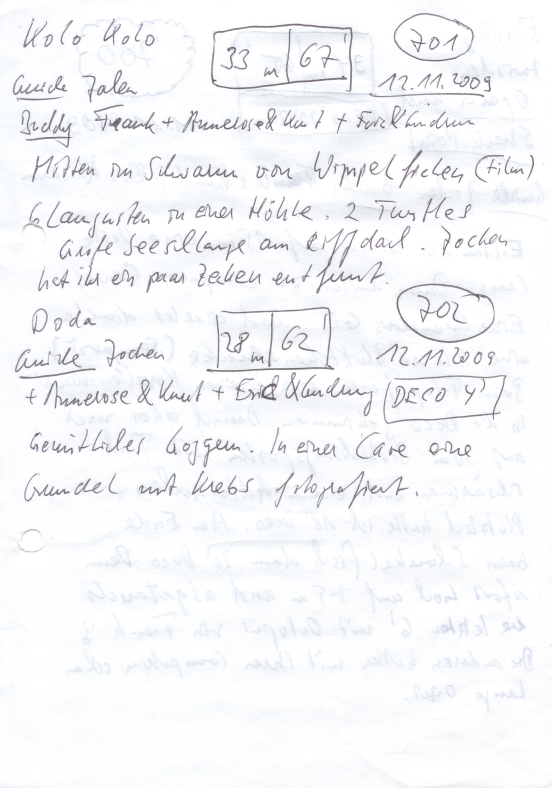 Kolo Kolo 33 m 67' 701
Guide Jalen 12.11.2009
Buddy Frank + Annerose & Knut + Eric &
Mitten im Schwarm von Wimpelfischen (Film)
6 Langusten in einer Höhle. 2 Turtles
Große Seeschlange am Riffdach. Jochen
hat ihr ein paar Zecken entfernt.
Doda 28 m 62' 702
Guide Jochen 12.11.2009
+ Annerose & Knut + Eric & DECO 4'
Gemütliches Joggen. In einer Cave eine
Grundel mit Krebs fotografiert.